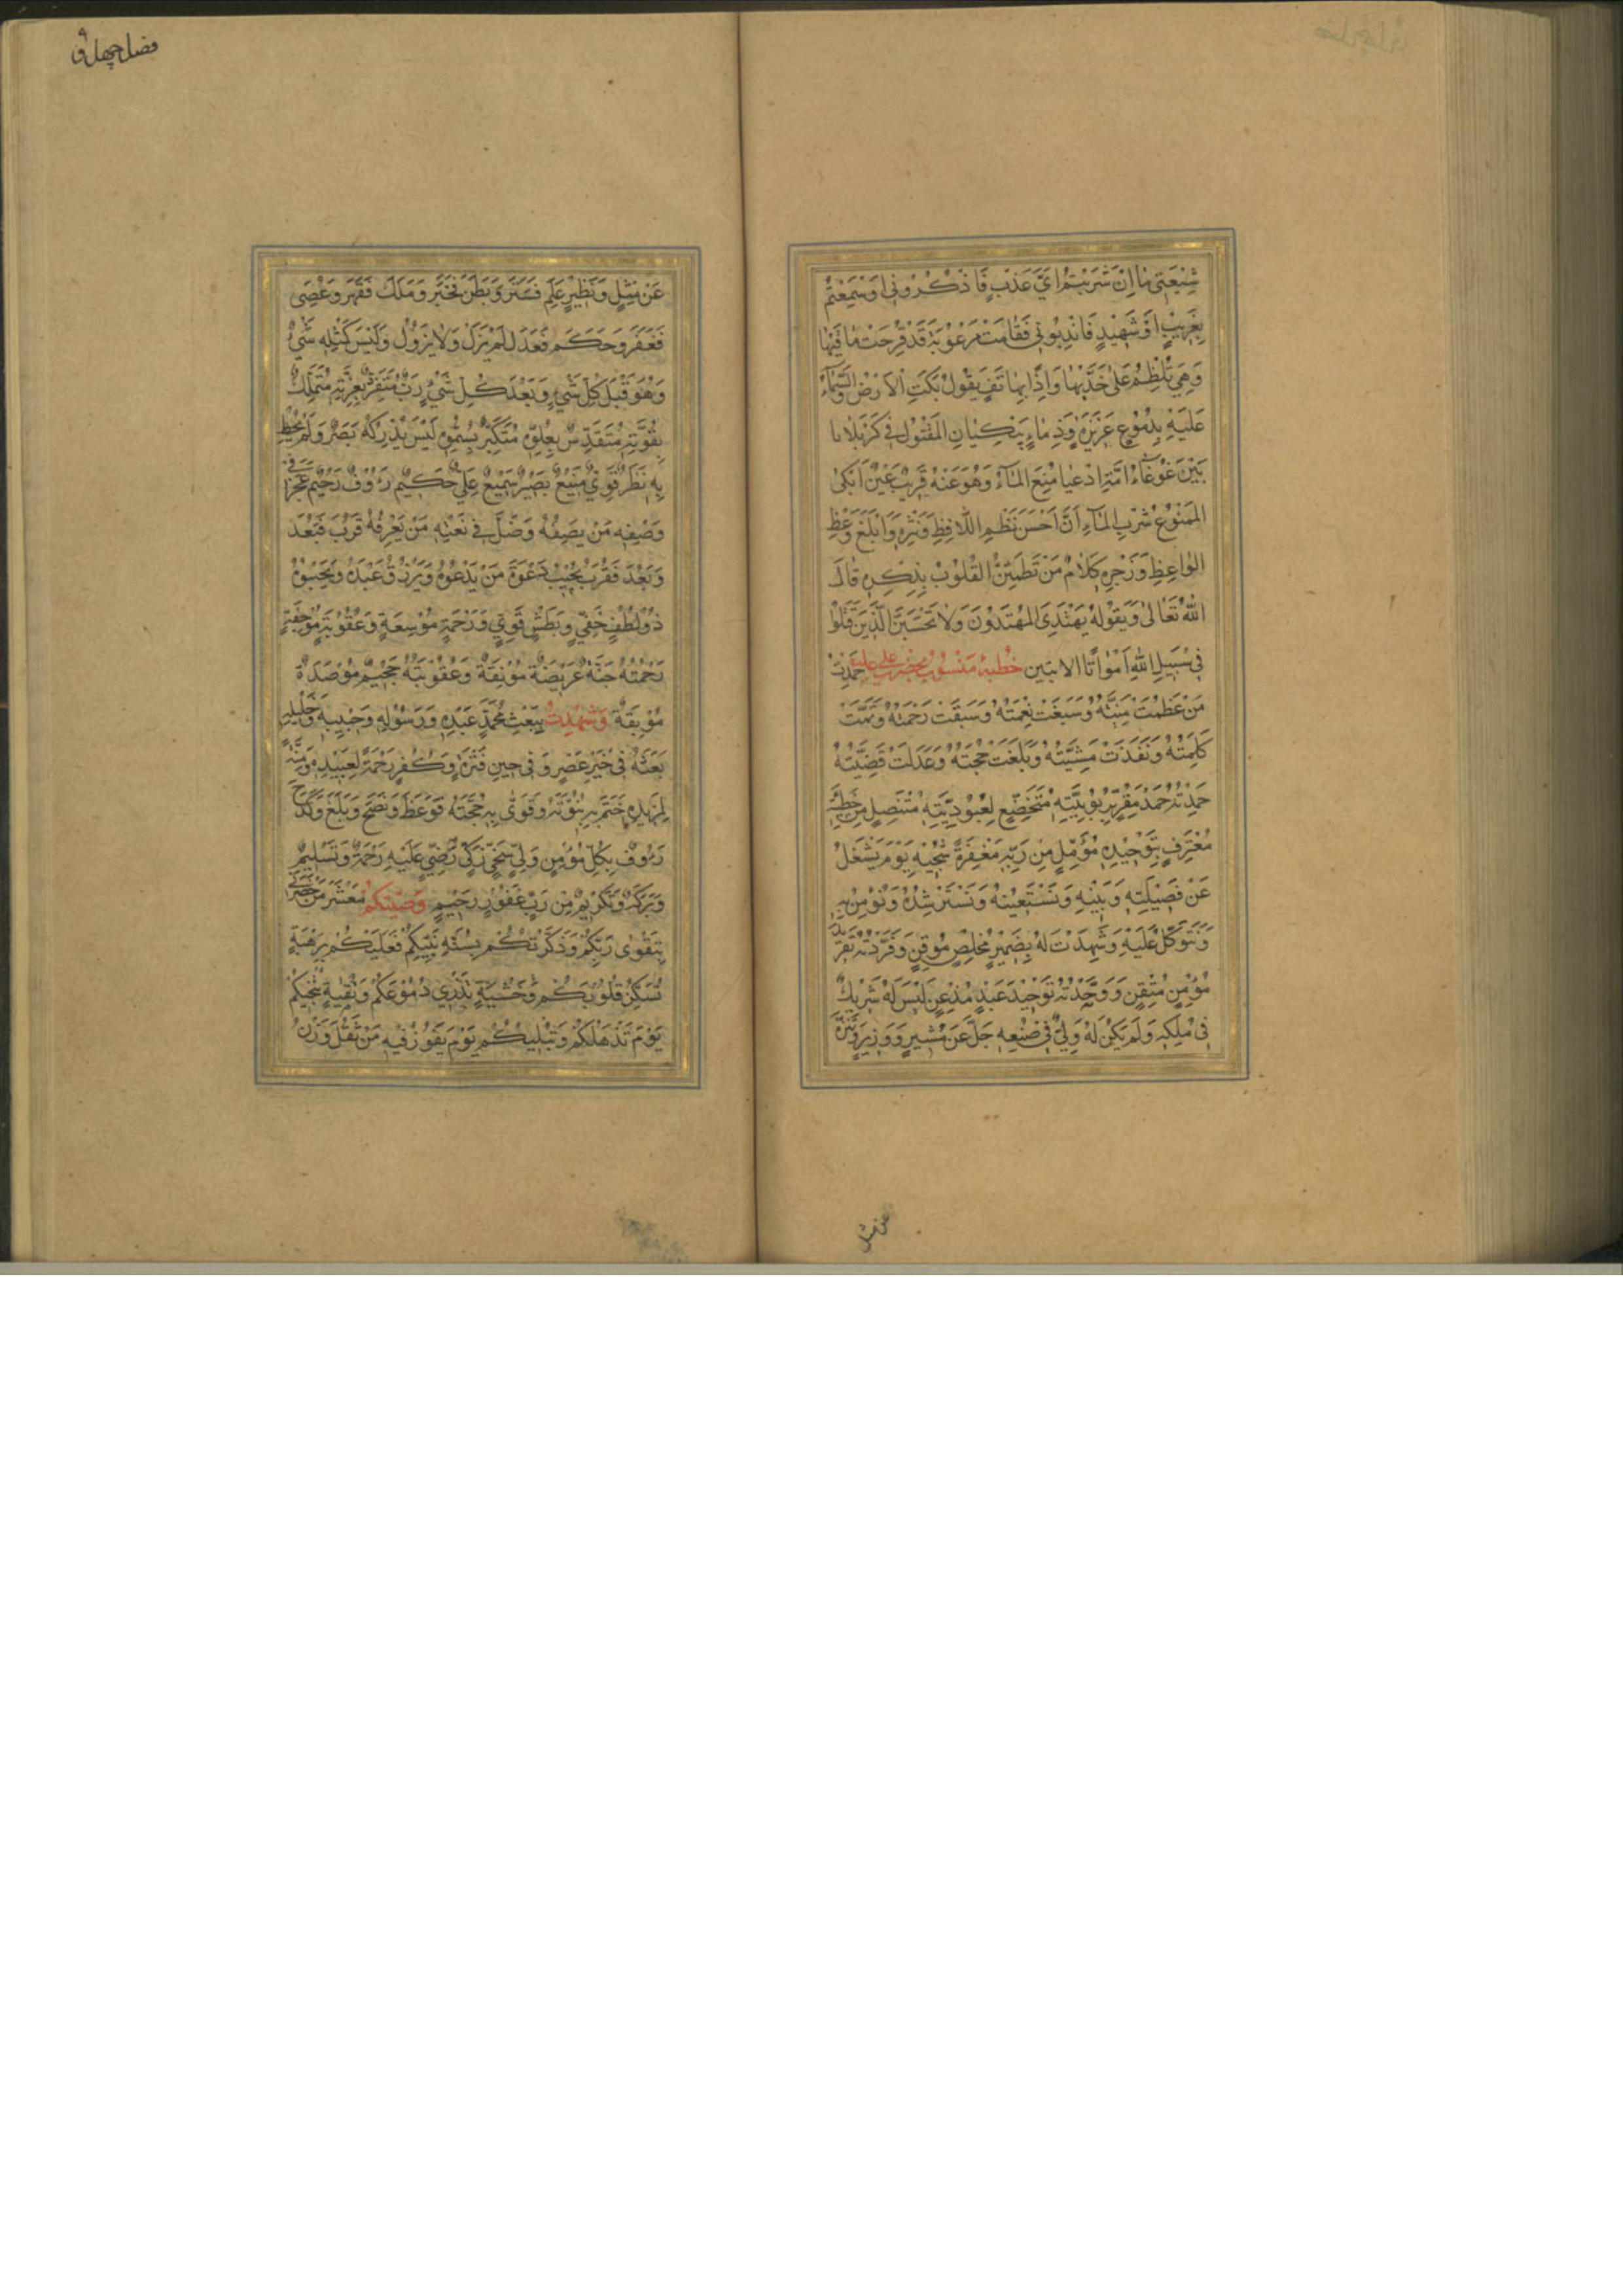 شِيْعَتِي مٰا اِنْ شَرِبْتُمْ اَيَّ عَذْبٍ فَاذْكُرُونِي اَوْ سَمِعْتُمْ
بِغَرِيْبٍ اَوْ شَهِيْدٍ فَانْدِبُونِي فَقٰامَتْ مَرْعُوْبَةً قَدْ قَرِحَتْ مٰا قَيْهٰا
وَهِيَ تَلْطِمُ عَلىٰ خَدَّيْهٰا وَاِذًا بِهٰاتِفٍ يَقُوْلُ بَكَتِ الْاَرْضُ وَالسَّمٰاءُ
عَلَيْهِ بِدُمُوْعٍ غَزِيْرَةٍ وَدِمٰاءٍ يَبْكِيٰانِ المَقْتُوْلَ فِي كَرْبَلا
بَيْنَ غَوْغٰاءِ اُمَّةٍ اَدْعِيٰا مُنِعَ المٰآءَ وَهُوَ عَنْهُ قَرِيْبٌ عَيْنُ ابْكىٰ
المَمْنُوْعَ شُرْبَ المٰآءِ اَنَّ اَحْسَنَ نَظْمِ اللّافِظِ وَنَثْرِهِ وَاَبْلَغَ وَعْظِ
الوٰاعِظِ وَزَجْرِهِ كَلٰامُ مَنْ تَطْمَئِنُّ القُلُوْبُ بِذِكْرِهِ قٰالَ
اللهُ تَعٰالىٰ وَبِقَوْلِهِ يَهْتَدِيَ المُهْتَدُوْنَ وَلٰا تَحْسَبَنَّ الَّذِيْنَ قُتِلُوْا
فِي سَبِيْلِ اللهِ اَمْوٰاتًا الايتين خُطْبهٔ مَنْسُوْب بحضرت علي عليه حَمِدْتُ
مَنْ عَظُمَتْ مِنَّتُهُ وَسَبَغَتْ نِعْمَتُهُ وَسَبَقَتْ رَحْمَتُهُ وَتَمَّتْ
كَلِمَتُهُ وَنَفَذَتْ مَشِيَّتُهُ وَبَلَغَتْ حُجَّتُهُ وَعَدَلَتْ قَضِيَّتُهُ
حَمِدْتُهُ حَمْدَ مُقِرٍّ بِرُبُوْبِيَّتِهِ مُتَخَضِّعٍ لِعُبُوْدِيَّتِهِ مُتَنَصِّلٍ مِنْ خَطِيْئَتِهِ
مُعْتَرِفٍ بِتَوْحِيْدِهِ مُؤَمِّلٍ مِنْ رَبِّهِ مَغْفِرَةً تُنْجِيْهِ يَوْمَ يَشْغَلُ
عَنْ فَصِيْلَتِهِ وَبَنِيْهِ وَنَسْتَعِيْنُهُ وَنَسْتَرْشِدُهُ وَنُؤْمِنُ بِهِ
وَنَتَوَكَّلُ عَلَيْهِ وَشَهِدْتُ لَهُ بِضَمِيْرٍ مُخْلِصٍ مُوْقِنٍ وَفَرَّدْتُهُ تَفْرِيْدَ
مُؤْمِنٍ مُتْقِنٍ وَوَحَّدْتُهُ تَوْحِيْدَ عَبْدٍ مُذْعِنٍ لَيْسَ لَهُ شَرِيْكٌ
فِي مُلْكِهِ وَلَمْ يَكُنْ لَهُ وَلِيٌّ فِي صُنْعِهِ جَلَّ عَنْ مُشِيْرٍ وَوَزِيْرٍ وَتَنَزَّهَ
عن مثل
فصل چهل و
عَنْ مِثْلٍ وَنَظِيْرٍ عَلِمَ فَسَتَرَ وَبَطَنَ فَخَبَرَ وَمَلَكَ فَقَهَرَ وَعُصِيَ
فَغَفَرَ وَحَكَمَ فَعَدَلَ لَمْ يَزَلْ وَلٰا يَزُوْلُ وَلَيْسَ كَمِثْلِهِ شَيْءٌ
وَهُوَ قَبْلَ كُلِّ شَيْءٍ وَبَعْدَ كُلِّ شَيْءٍ رَبٌّ مُتَفَرِّدٌ بِعِزَّتِهِ مُتَمَلِّكٌ
بِقُوَّتِهِ مُتَقَدِّسٌ بِعُلُوِّهِ مُتَكَبِّرٌ بِسُمُوِّهِ لَيْسَ يُدْرِكُهُ بَصَرٌ وَلَمْ يُحِطْ
بِهِ نَظَرٌ قَوِيٌّ مَنِيْعٌ بَصِيْرٌ سَمِيْعٌ عَلِيٌّ حَكِيْمٌ رَؤُوْفٌ رَحِيْمٌ عَجَزَ فِي
وَصْفِهِ مَنْ يَصِفُهُ وَضَلَّ فِي نَعْتِهِ مَنْ يَعْرِفُهُ قَرُبَ فَبَعُدَ
وَبَعُدَ فَقَرُبَ يُجِيْبُ دَعْوَةَ مَنْ يَدْعُوْهُ وَيَرْزُقُ عَبْدَهُ وَيَحْبُوْهُ
ذُوْ لُطْفٍ خَفِيٍّ وَبَطْشٍ قَوِيٍّ وَرَحْمَةٍ مُوْسِعَةٍ وَعُقُوْبَةٍ مُوْجِعَةٍ
رَحْمَتُهُ جَنَّةٌ عَرِيْضَةٌ مُوْنِقَةٌ وَعُقُوْبَتُهُ جَحِيْمٌ مُؤْصَدَةٌ
مُوْبِقَةٌ وَشَهِدْتُ بِبَعْثِ مُحَمَّدٍ عَبْدِهِ وَرَسُوْلِهِ وَحَبِيْبِهِ وَخَلِيْلِهِ
بَعَثَهُ فِي خَيْرِ عَصْرٍ وَفِي حِيْنِ فَتْرَةٍ وَكُفْرٍ رَحْمَةً لِعَبِيْدِهِ وَمِنَّةً
لِمَزِيْدِهِ خَتَمَ بِهِ نُبُوَّتَهُ وَقَوّىٰ بِهِ حُجَّتَهُ فَوَعَظَ وَنَصَحَ وَبَلَّغَ وَكَدَحَ
رَؤُوْفٌ بِكُلِّ مُؤْمِنٍ وَلِيٌّ سَخِيٌّ زَكِيٌّ رَضِيٌّ عَلَيْهِ رَحْمَةٌ وَتَسْلِيْمٌ
وَبَرَكَةٌ وَتَكْرِيْمٌ مِنْ رَبٍّ غَفُوْرٍ رَحِيْمٍ وَصَّيْتُكُمْ مَعْشَرَ مَنْ حَضَرَنِي
بِتَقْوىٰ رَبِّكُمْ وَذَكَّرْتُكُمْ بِسُنَّةِ نَبِيِّكُمْ فَعَلَيْكُمْ بِرَهْبَةٍ
تُسَكِّنُ قُلُوْبَكُمْ وَخَشْيَةٍ تُذْرِي دُمُوْعَكُمْ وَتَقِيَّةٍ تُنْجِيْكُمْ
يَوْمَ تَذْهَلُكُمْ وَتُبْلِيْكُمْ يَوْمَ يَفُوْزُ فِيْهِ مَنْ ثَقُلَ وَزْنُ